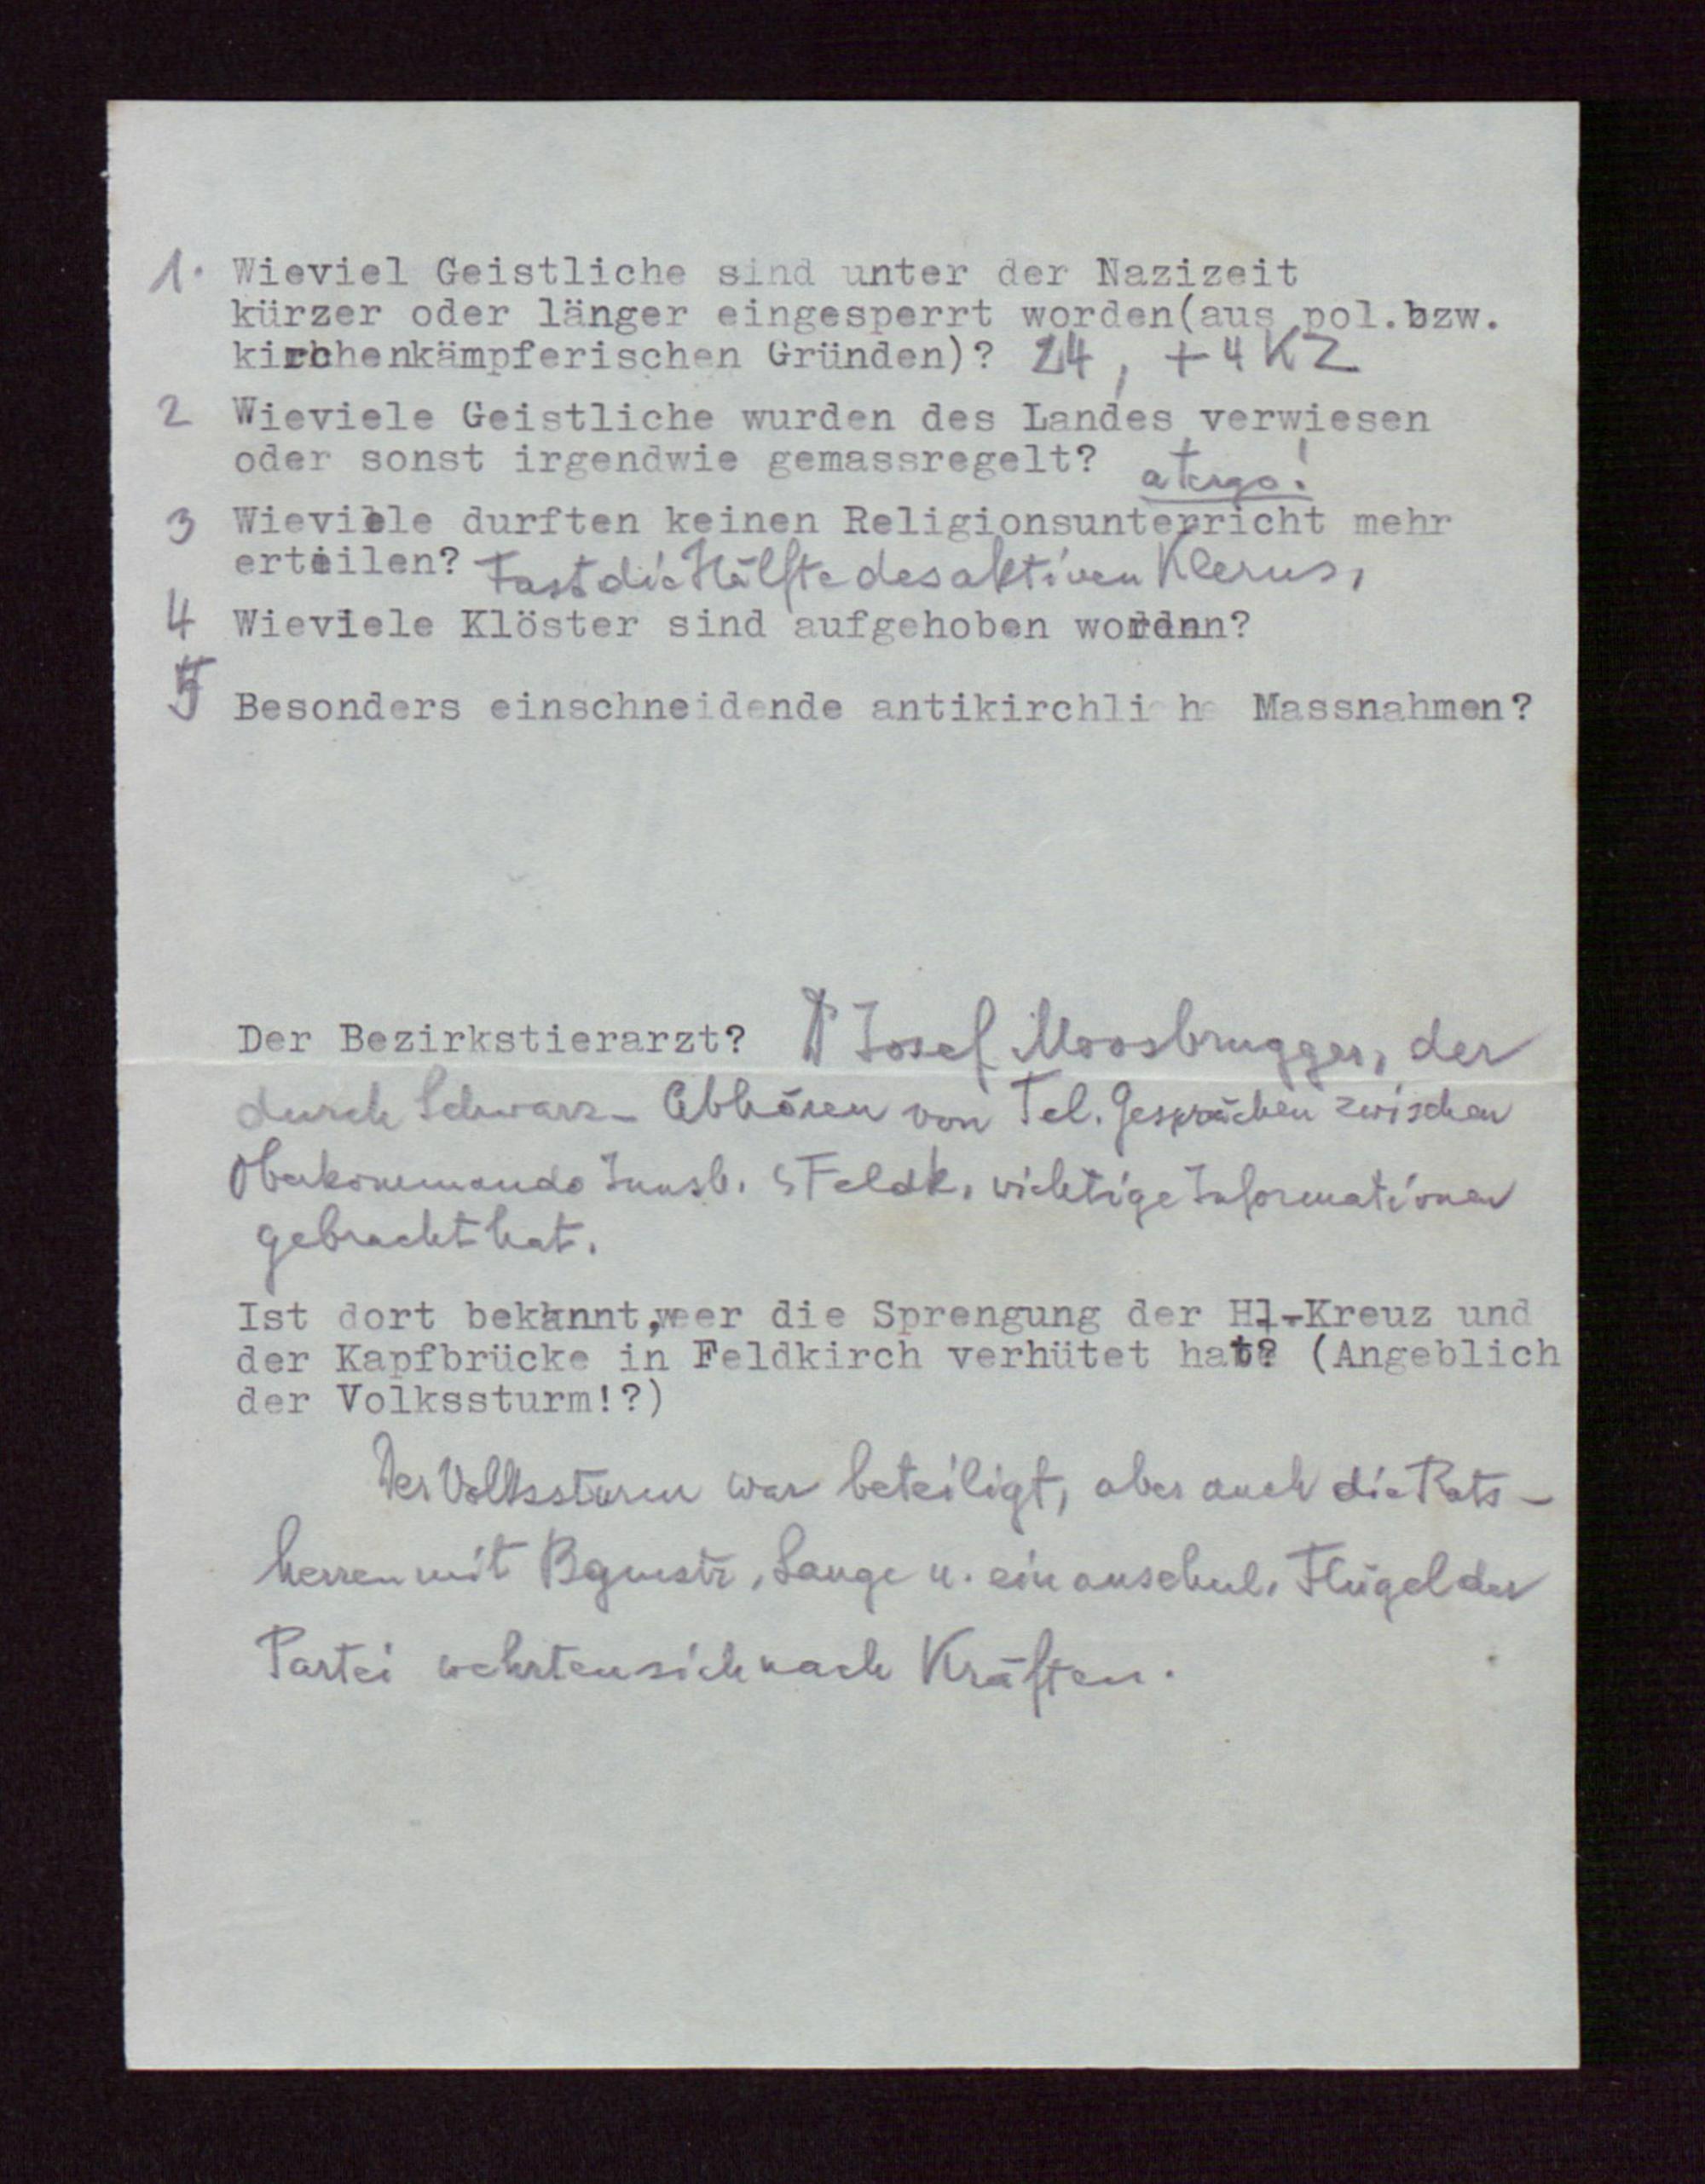 1. Wieviel Geistliche sind unter der Nazizeit
kürzer oder länger eingesperrt worden(aus pol.bzw.
kirchenkämpferischen Gründen)? 24, + 4 KZ
2 Wieviele Geistliche wurden des Landes verwiesen
oder sonst irgendwie gemassregelt? a tergo!
3 Wieviele durften keinen Religionsunterricht mehr
erteilen? Fast die Hälfte des aktiven Klerus,
4 Wieviele Klöster sind aufgehoben wordnn?
5 Besonders einschneidende antikirchliche Massnahmen?
Der Bezirkstierarzt? Josef Moosbrugger, der
durch Schwarz-Abhören von Tel. Gesprächen zwischen
Oberkommando Innsb. Feldk. wichtige Informationen
gebracht hat.
Ist dort bekannt, wer die Sprengung der Hl-Kreuz und
der Kapfbrücke in Feldkirch verhütet hat? (Angeblich
der Volkssturm!?)
Der Volkssturm war beteiligt, aber auch die Rats-
herren mit Bgmstr. Lange u. ein ansehnl. Flügel der
Partei wehrten sich nach Kräften.